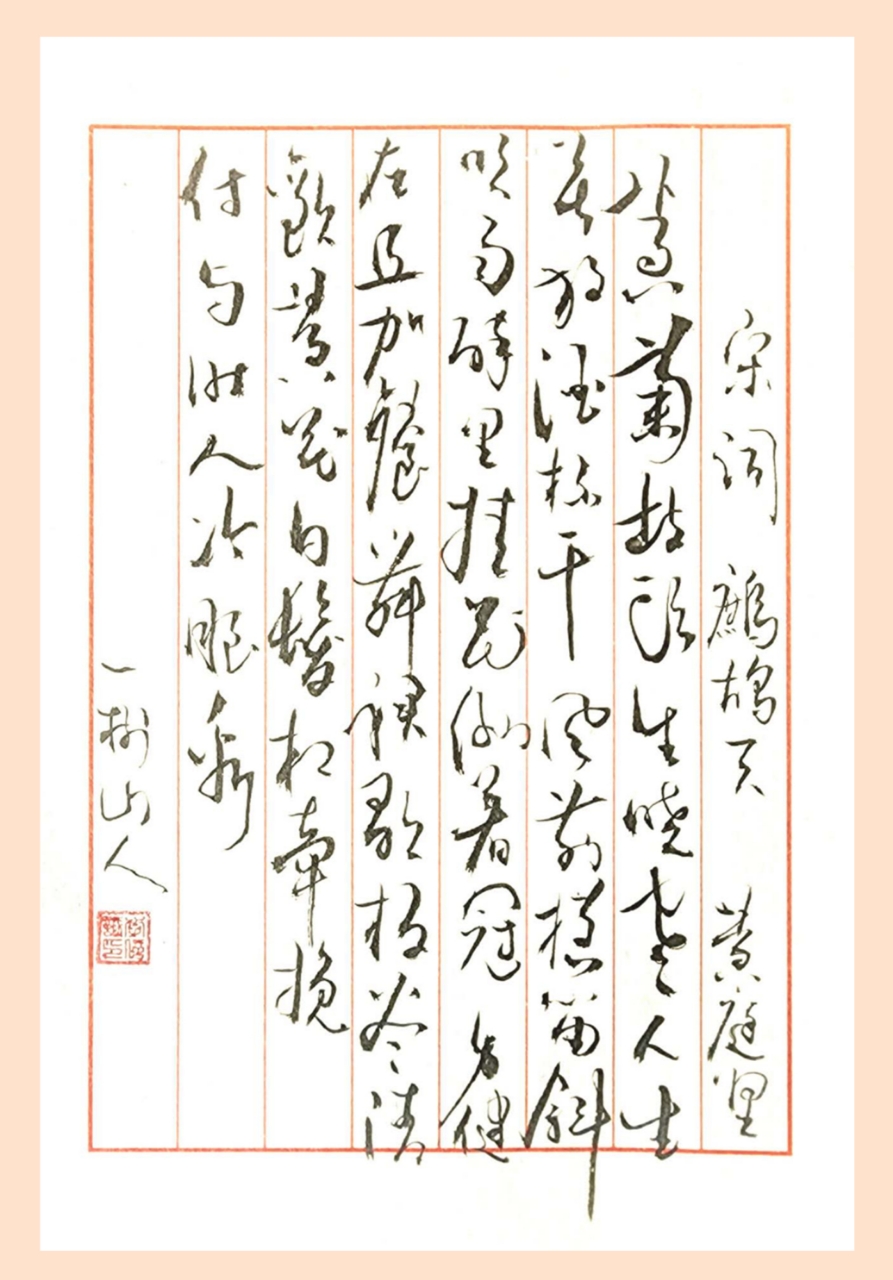 宋词 鹧鸪天 黄庭坚
黄菊枝头生晓寒人生
莫放酒杯干风前横笛斜
吹雨醉里花倒着冠身健
在且加餐舞裙歌板尽清
歡黄花白髮相牵挽
付与时人冷眼看
一树山人